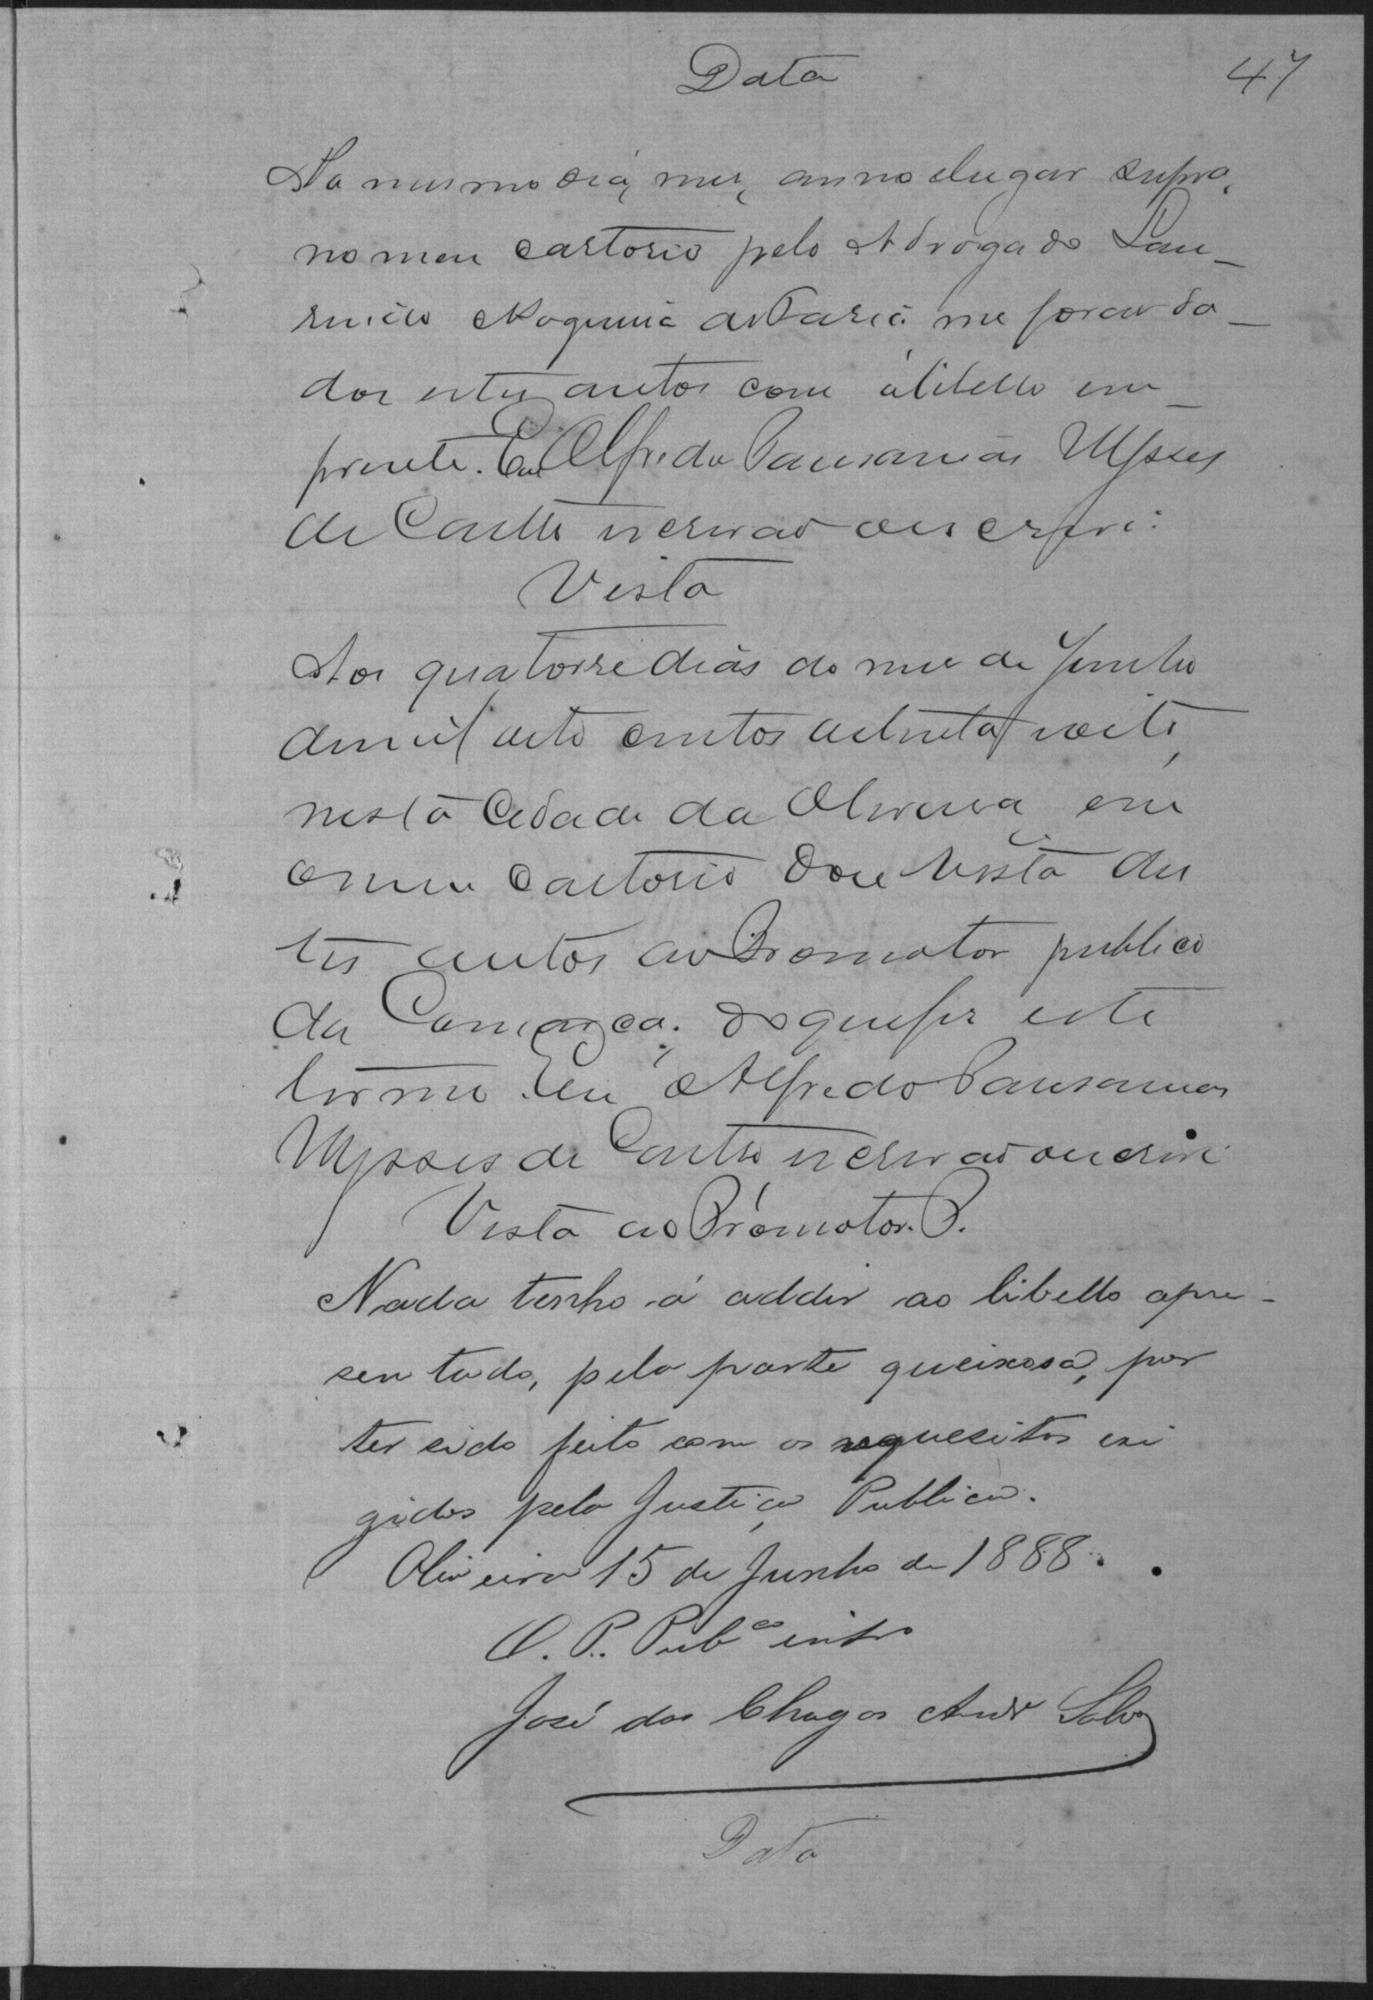 Data
47
No mesmo dia, mez, anno e lugar supra,
no meu cartorio pelo Advogado Lau-
me foram da-
dos estes autos com o libello em
frente. Eu Alfredo Pausanias Ulysses
de Castro escrivão o escrevi.
Vista
Aos quatorze dias do mez de Junho
de mil oito centos e oitenta e oito,
nesta Cidade da Oliveira, em
o meu Cartorio dou vista des
tes autos ao Promotor publico
da Comarca; do que fiz este
termo. Eu Alfredo Pausanias
Ulysses de Castro escrivão o escrevi
Vista ao Promotor. P.
Nada tenho á addir ao libello apre-
sentado, pela parte queixosa, por
ter sido feito com os requesitos exi
gidos pela Justiça Publica.
Oliveira 15 de Junho de 1888.
O. P. Pub.co into
José das Chagas Andr Salvo
Data